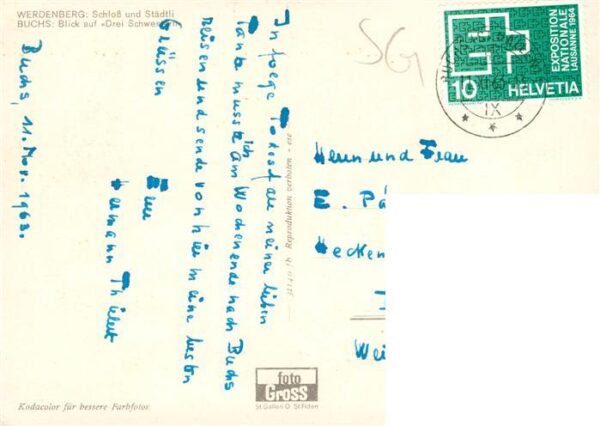 WERDENBERG: Schloß und Städtli
BUCHS: Blick auf «Drei Schwestern»
Buchs, 11. Nov. 1963.
Infolge Todesfall meiner lieben
Tante musste ich am Wochenende nach Buchs
reisen und sende von hier meine besten
Grüssen
Hermann
Reproduktion verboten
foto
Gross
St.Gallen O St.Fiden
Kodacolor für bessere Farbfotos
SG
EXPOSITION
NATIONALE
LAUSANNE 1964
10 HELVETIA
IX
Herrn und Frau
E. Pä
Hecken
Wei